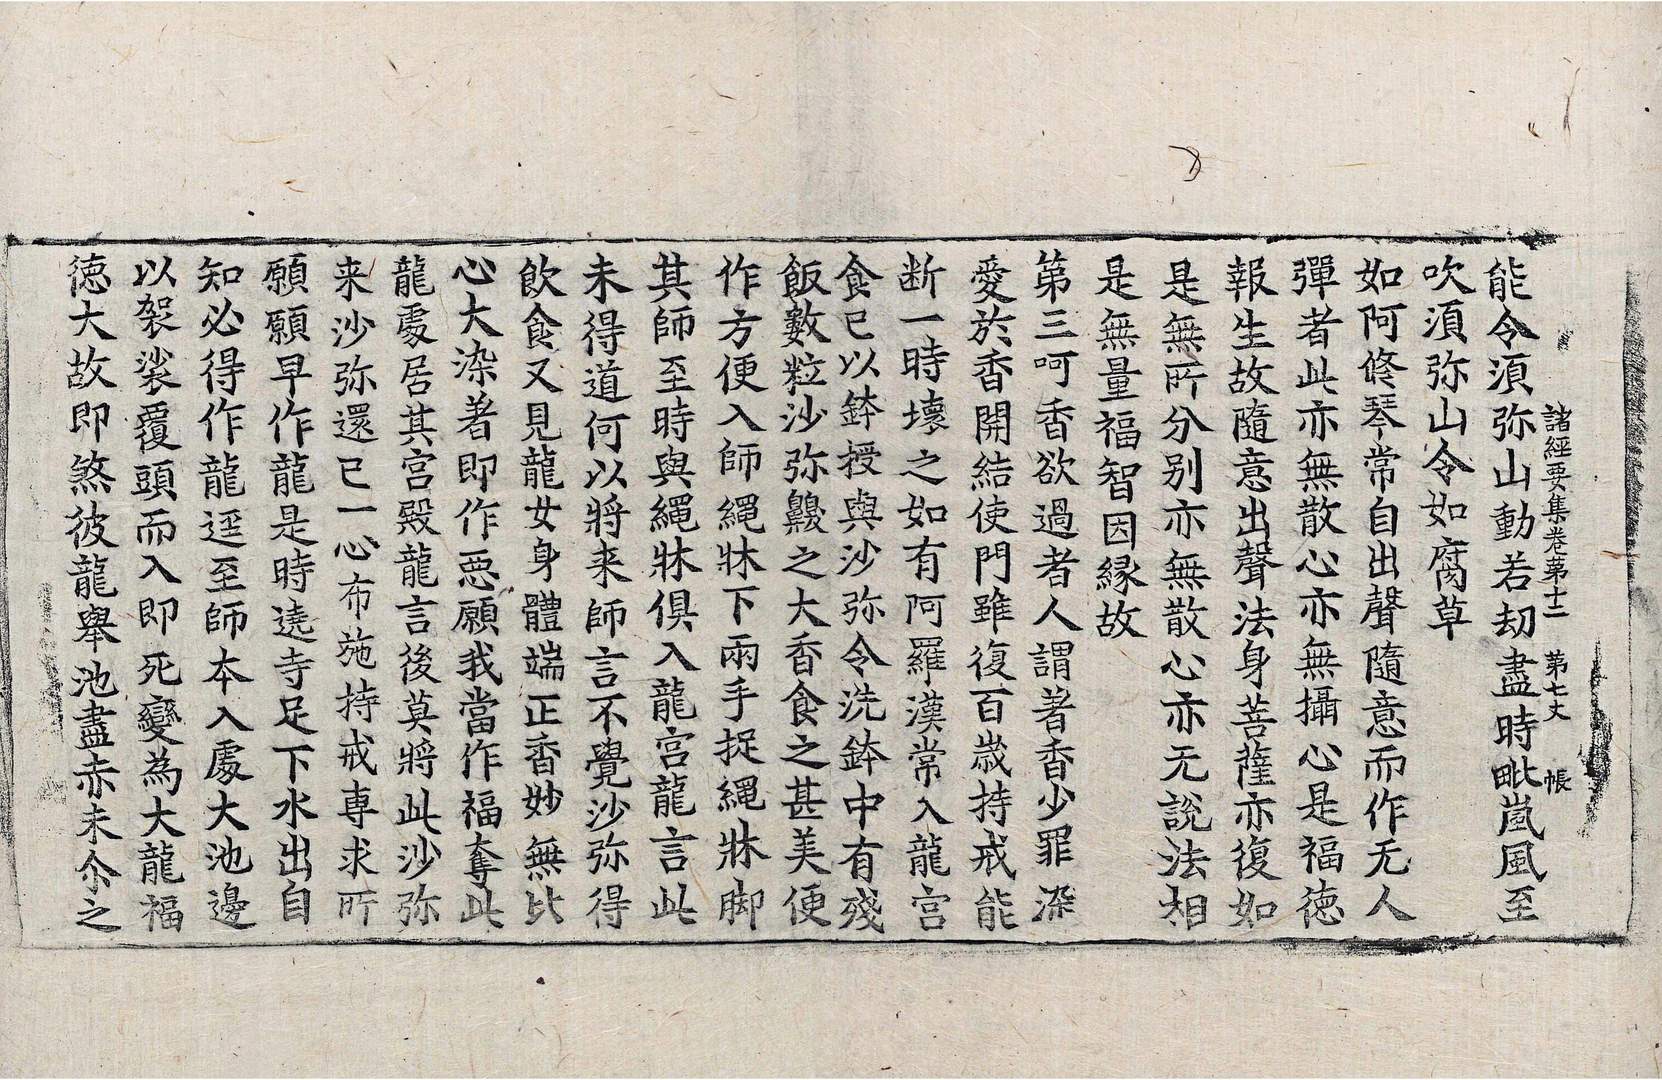 諸經要集卷第十二 第七丈 帳
能令須弥山動若劫盡時毗嵐風至
吹須弥山令如腐草
如阿修琴常自出聲隨意而作无人
彈者此亦無散心亦無攝心是福德
報生故隨意出聲法身菩薩亦復如
是無所分别亦無散心亦无說法相
是無量福智因緣故
第三呵香欲過者人謂著香少罪深
愛於香開結使門雖復百歲持戒能
断一時壞之如有阿羅漢常入龍宮
食已以鉢授與沙弥令洗鉢中有殘
飯數粒沙弥齅之大香食之甚美便
作方便入師繩牀下兩手捉繩牀脚
其師至時與繩牀俱入龍宮龍言此
未得道何以將来師言不覺沙弥得
飲食又見龍女身體端正香妙無比
心大染著即作惡願我當作福奪此
龍處居其宮殿龍言後莫將此沙弥
来沙弥還已一心布施持戒專求所
願願早作龍是時遶寺足下水出自
知必得作龍逕至師本入處大池邊
以袈裟覆頭而入即死變為大龍福
徳大故即煞彼龍舉池盡赤未尒之